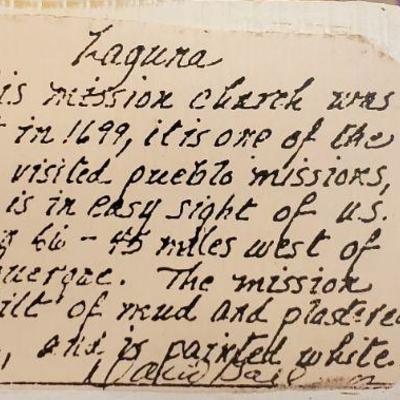 Laguna
is mission church was
t in 1699, it is one of the
visited pueblo missions,
is in easy sight of U.S.
y 66 - 45 miles west of
querque. The mission
ilt of mud and plastered
, and is painted white.
David